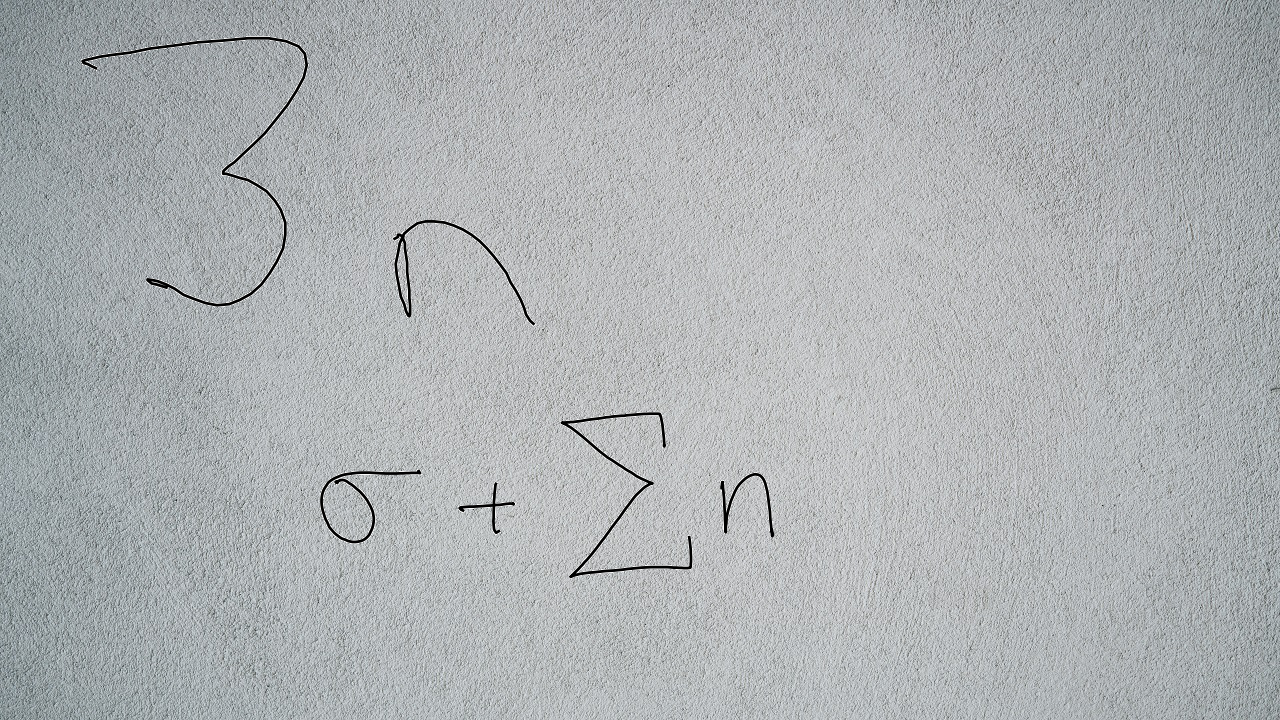 3n
σ + Σ n